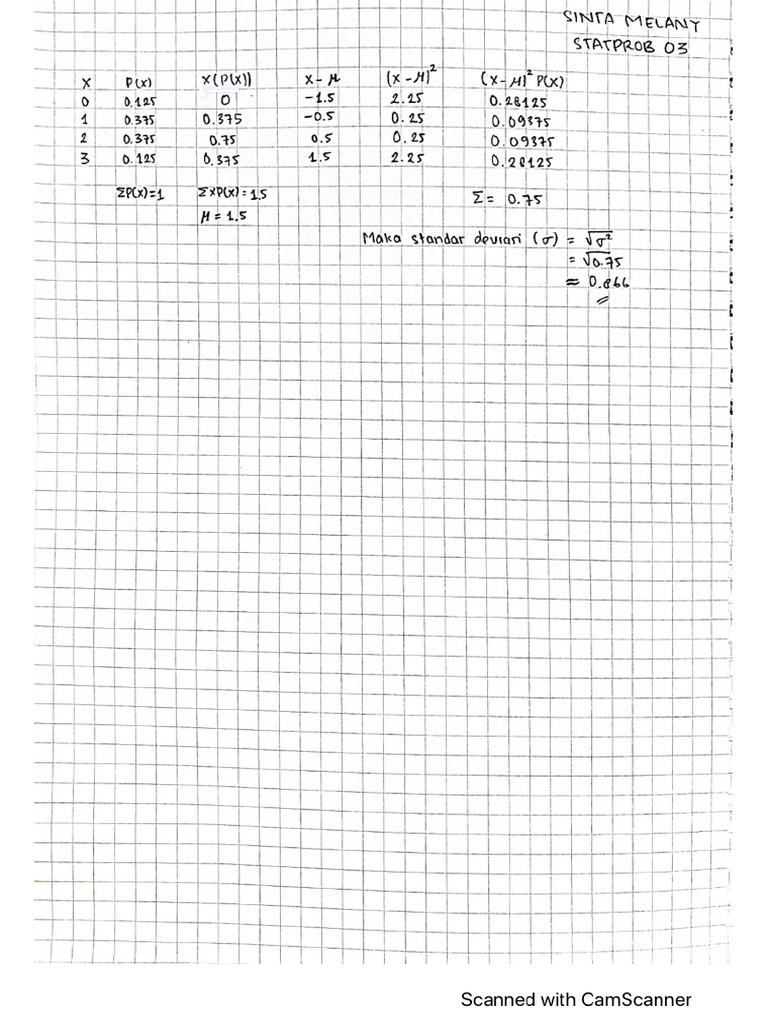 SINTA MELANY
STATPROB 03
X P(X) X(P(X)) X-μ (X-μ)² (X-μ)² P(X)
0 0.125 0 -1.5 2.25 0.28125
1 0.375 0.375 -0.5 0.25 0.09375
2 0.375 0.75 0.5 0.25 0.09375
3 0.125 0.375 1.5 2.25 0.28125
ΣP(X)=1 ΣXP(X)=1.5 Σ= 0.75
μ = 1.5
Maka standar deviasi (σ) = √σ²
= √0.75
≈ 0.866
Scanned with CamScanner